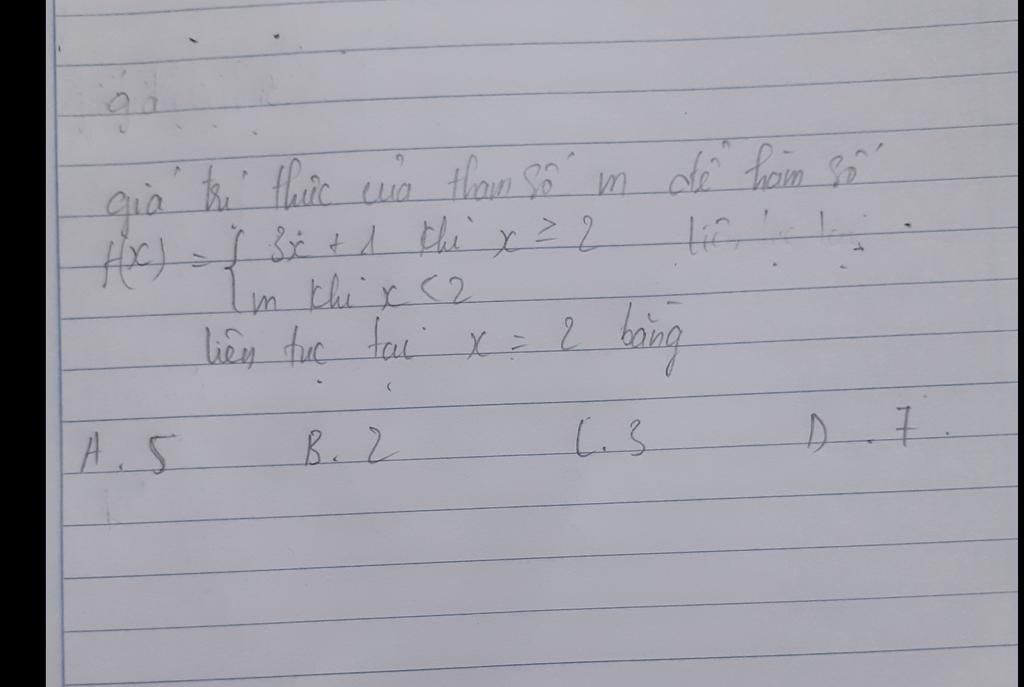 giá trị thức của tham số m để hàm số
f(x) = { 3x + 1 khi x ≥ 2
m khi x < 2
liên tục tại x = 2 bằng
A. 5 B. 2 C. 3 D. 7.